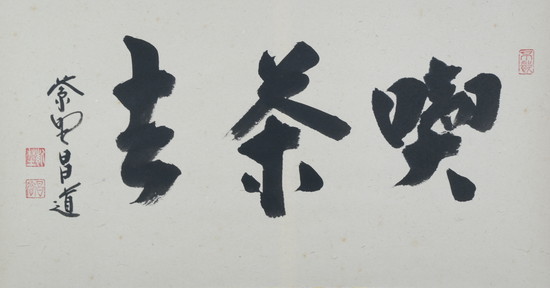 喫茶去
紫野昌道